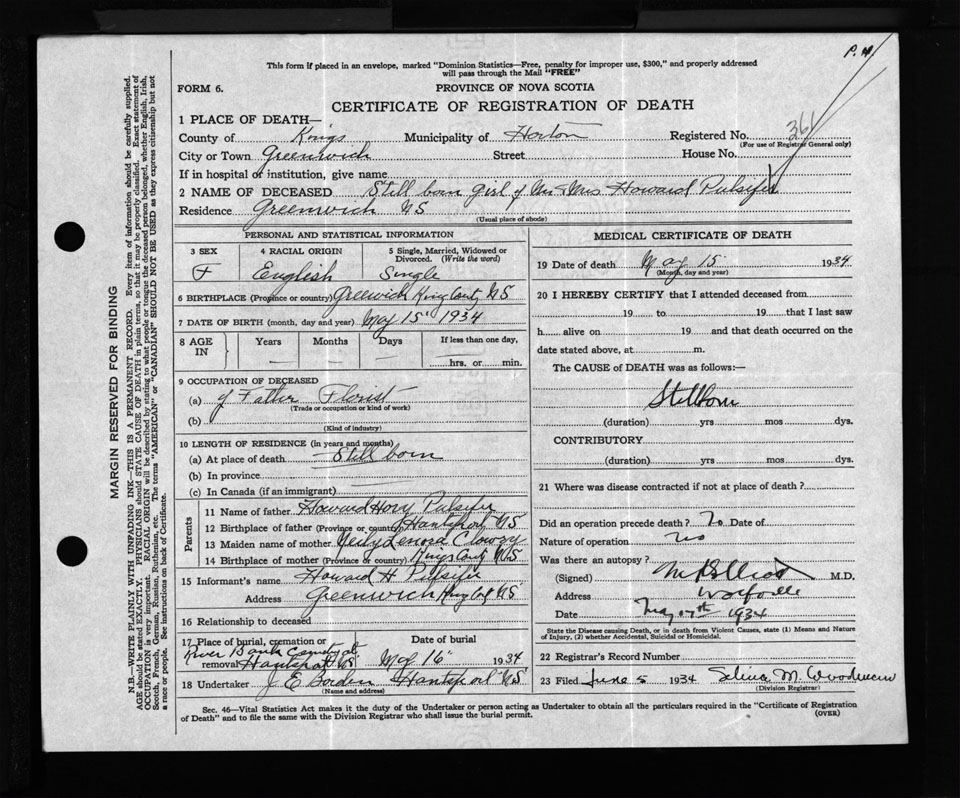 P. H
This form if placed in an envelope, marked "Dominion Statistics—Free, penalty for improper use, $300," and properly addressed
will pass through the Mail "FREE"
FORM 6.
PROVINCE OF NOVA SCOTIA
CERTIFICATE OF REGISTRATION OF DEATH
1 PLACE OF DEATH—
County of Kings Municipality of Horton Registered No. 361
(For use of Registrar General only)
City or Town Greenwich Street House No.
If in hospital or institution, give name
2 NAME OF DECEASED Still born girl of Mr Mrs Howard Pulsifer
Residence Greenwich NS
(Usual place of abode)
PERSONAL AND STATISTICAL INFORMATION
3 SEX 4 RACIAL ORIGIN 5 Single, Married, Widowed or
Divorced. (Write the word)
F English Single
6 BIRTHPLACE (Province or country) Greenwich Kings Conty NS
7 DATE OF BIRTH (month, day and year) May 15" 1934
8 AGE Years Months Days If less than one day,
IN — — — hrs. or min.
9 OCCUPATION OF DECEASED
(a) of Father Florist
(Trade or occupation or kind of work)
(b)
(Kind of industry)
10 LENGTH OF RESIDENCE (in years and months)
(a) At place of death Still born
(b) In province
(c) In Canada (if an immigrant)
Parents
11 Name of father Howard Pulsifer
12 Birthplace of father (Province or country) Hantsport NS
13 Maiden name of mother Lenora
14 Birthplace of mother (Province or country) Kings Conty NS
15 Informant's name Howard H Pulsifer
Address Greenwich Kings NS
16 Relationship to deceased
17 Place of burial, cremation or Date of burial
River Bank
removal Hantsport NS May 16" 1934
18 Undertaker J E Borden Hantsport NS
(Name and address)
MEDICAL CERTIFICATE OF DEATH
19 Date of death May 15 1934
(Month, day and year)
20 I HEREBY CERTIFY that I attended deceased from
19 to 19 that I last saw
h alive on 19 and that death occurred on the
date stated above, at m.
The CAUSE of DEATH was as follows:—
Stillborn
(duration) yrs mos dys.
CONTRIBUTORY
(duration) yrs mos dys.
21 Where was disease contracted if not at place of death?
Did an operation precede death? No Date of
Nature of operation
Was there an autopsy? no
(Signed) Elliott M.D.
Address Wolfville
Date May 17th 1934
State the Disease causing Death, or in death from Violent Causes, state (1) Means and Nature
of Injury, (2) whether Accidental, Suicidal or Homicidal.
22 Registrar's Record Number
23 Filed June 5 1934 Selina M.
(Division Registrar)
Sec. 46—Vital Statistics Act makes it the duty of the Undertaker or person acting as Undertaker to obtain all the particulars required in the "Certificate of Registration
of Death" and to file the same with the Division Registrar who shall issue the burial permit.
(OVER)
MARGIN RESERVED FOR BINDING
N.B.—WRITE PLAINLY WITH UNFADING INK—THIS IS A PERMANENT RECORD. Every item of information should be carefully supplied.
AGE should be stated EXACTLY. PHYSICIANS should STATE CAUSE OF DEATH in plain terms, so that it may be properly classified. Exact statement of
OCCUPATION is very important. RACIAL ORIGIN will be described by stating to what people or tongue the deceased person belonged, whether English, Irish,
Scotch, French, German, Russian, Ruthenian, etc. The terms "AMERICAN" or "CANADIAN" SHOULD NOT BE USED as they express citizenship but not
a race or people. See instructions on back of Certificate.